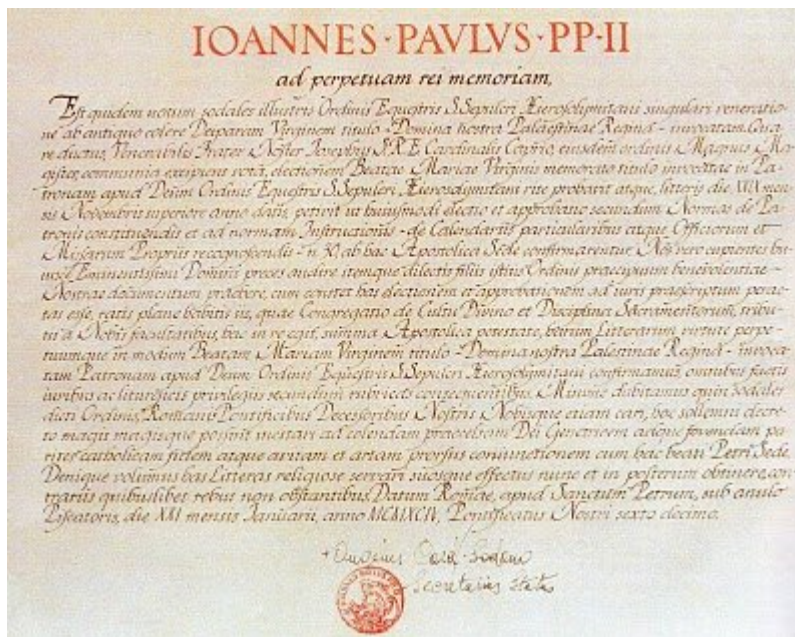 IOANNES·PAVLVS·PP·II
ad perpetuam rei memoriam,
Est quidem notum sodales illustris Ordinis Equestris S. Sepulcri Hierosolymitani singulari veneratio-
ne ab antiquo colere Deiparam Virginem titulo - Domina nostra Palaestinae Regina - invocatam. Qua
re ductus, Venerabilis Frater Noster Iosephus S.R.E. Cardinalis Caprio, eiusdem ordinis Magnus Ma-
gister, communia excipiens vota, electionem Beatae Mariae Virginis memorato titulo invocatae in Pa-
tronam apud Deum Ordinis Equestris S. Sepulcri Hierosolymitani rite probavit atque, litteris die men-
sis Novembris superiore anno datis, petivit ut huiusmodi electio et approbatio secundum Normas de Pa-
tronis constituendis et ad normam Instructionis - de Calendariis particularibus atque Officiorum et
Missarum Propriis recognoscendis - n. 30 ab hac Apostolica Sede confirmarentur. Nos vero cupientes hu-
iusce Eminentissimi Domini preces audire itemque dilectis filiis istius Ordinis praecipuum benevolentiae
Nostrae documentum praebere, cum constet has electionem et approbationem ad iuris praescriptum perac-
tas esse, ratis plane habitis iis, quae Congregatio de Cultu Divino et Disciplina Sacramentorum, tribu-
tis a Nobis facultatibus, hac in re egit, summa Apostolica potestate, harum Litterarum virtute perpe-
tuumque in modum Beatam Mariam Virginem titulo - Domina nostra Palestinae Regina - invoca-
tam Patronam apud Deum Ordinis Equestris S. Sepulcri Hierosolymitani confirmamus, omnibus factis
iuribus ac liturgicis privilegiis secundum rubricas consequentibus. Minime dubitamus quin sodales
dicti Ordinis, Romanis Pontificibus Decessoribus Nostris Nobisque etiam cari, hoc sollemni decre-
to magis magisque possint incitari ad colendam praecelsam Dei Genetricem adque fovendam pa-
riter catholicam fidem atque avitam et artam prorsus coniunctionem cum hac beati Petri Sede.
Denique volumus has Litteras religiose servari suosque effectus nunc et in posterum obtinere, con-
trariis quibuslibet rebus non obstantibus. Datum Romae, apud Sanctum Petrum, sub anulo
Piscatoris, die XXI mensis Ianuarii, anno MCMXCIV, Pontificatus Nostri sexto decimo.
+ Angelus Card. Sodano
Secretarius Status